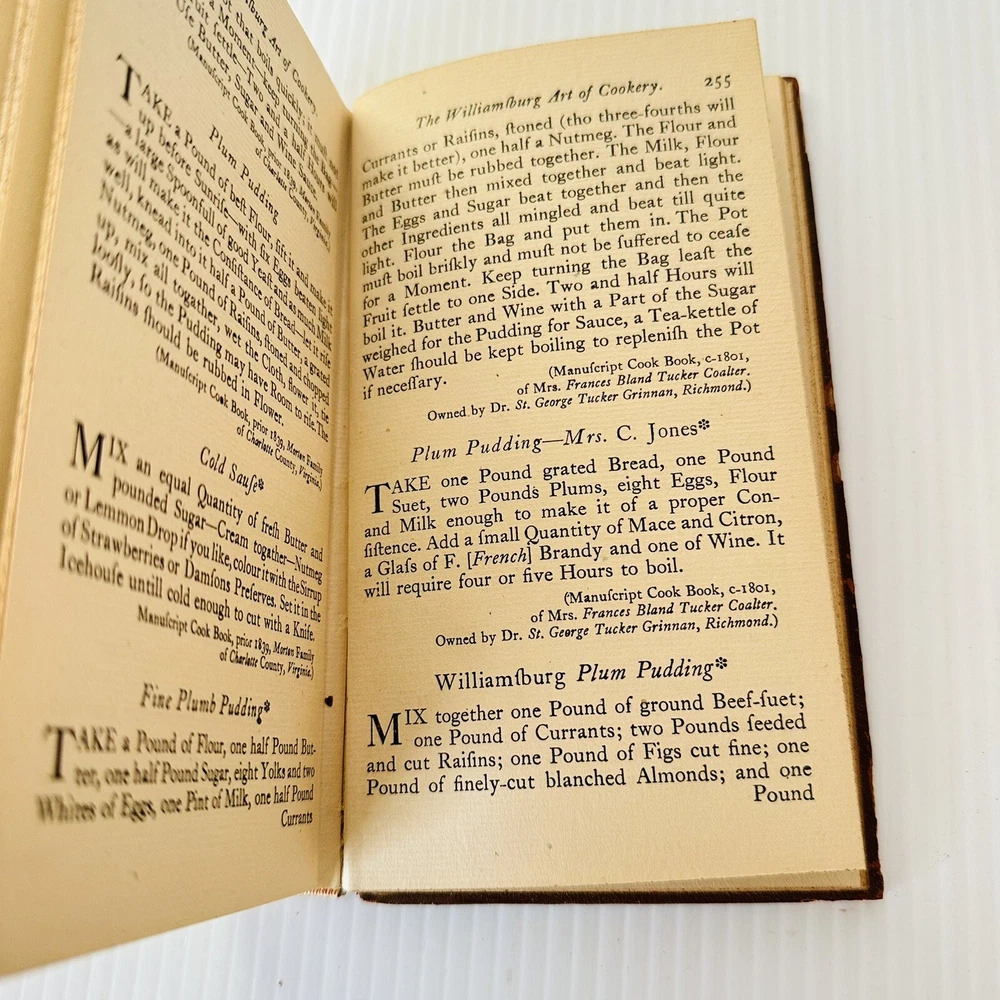 ſburg Art of Cookery.
that boils quickly; it
a Moment—keep turning the Bag
ſettle. Two and a half Hours will
Uſe Butter, Sugar and Wine Sauce
(Manuſcript Cook Book, prior 1839, Morton Family
of Charlotte County, Virginia.)
Plum Pudding
TAKE a Pound of beſt Flour, ſift it and make it
up before Sunriſe—with ſix Eggs beaten light
—a large Spoonfull of good Yeaſt and as much Milk
as will make it the Conſiſtance of Bread—let it riſe
well, knead into it half a Pound of Butter, a grated
Nutmeg, one Pound of Raiſins, ſtoned and chopped
up, mix all togather, wet the Cloth, flower it, tie
looſly, ſo the Pudding may have Room to riſe. The
Raiſins ſhould be rubbed in Flower.
(Manuſcript Cook Book, prior 1839, Morton Family
of Charlotte County, Virginia.)
Cold Sauſe*
MIX an equal Quantity of freſh Butter and
pounded Sugar—Cream togather—Nutmeg
or Lemmon Drop if you like, colour it with the Sirrup
of Strawberries or Damſons Preſerves. Set it in the
Icehouſe untill cold enough to cut with a Knife.
Manuſcript Cook Book, prior 1839, Morton Family
of Charlotte County, Virginia.)
Fine Plumb Pudding*
TAKE a Pound of Flour, one half Pound But-
ter, one half Pound Sugar, eight Yolks and two
Whites of Eggs, one Pint of Milk, one half Pound
Currants
The Williamſburg Art of Cookery. 255
Currants or Raiſins, ſtoned (tho three-fourths will
make it better), one half a Nutmeg. The Flour and
Butter muſt be rubbed together. The Milk, Flour
and Butter then mixed together and beat light.
The Eggs and Sugar beat together and then the
other Ingredients all mingled and beat till quite
light. Flour the Bag and put them in. The Pot
muſt boil briſkly and muſt not be ſuffered to ceaſe
for a Moment. Keep turning the Bag leaſt the
Fruit ſettle to one Side. Two and half Hours will
boil it. Butter and Wine with a Part of the Sugar
weighed for the Pudding for Sauce, a Tea-kettle of
Water ſhould be kept boiling to repleniſh the Pot
if neceſſary.
(Manuſcript Cook Book, c-1801,
of Mrs. Frances Bland Tucker Coalter.
Owned by Dr. St. George Tucker Grinnan, Richmond.)
Plum Pudding—Mrs. C. Jones*
TAKE one Pound grated Bread, one Pound
Suet, two Pounds Plums, eight Eggs, Flour
and Milk enough to make it of a proper Con-
ſiſtence. Add a ſmall Quantity of Mace and Citron,
a Glaſs of F. [French] Brandy and one of Wine. It
will require four or five Hours to boil.
(Manuſcript Cook Book, c-1801,
of Mrs. Frances Bland Tucker Coalter.
Owned by Dr. St. George Tucker Grinnan, Richmond.)
Williamſburg Plum Pudding*
MIX together one Pound of ground Beef-ſuet;
one Pound of Currants; two Pounds ſeeded
and cut Raiſins; one Pound of Figs cut fine; one
Pound of finely-cut blanched Almonds; and one
Pound